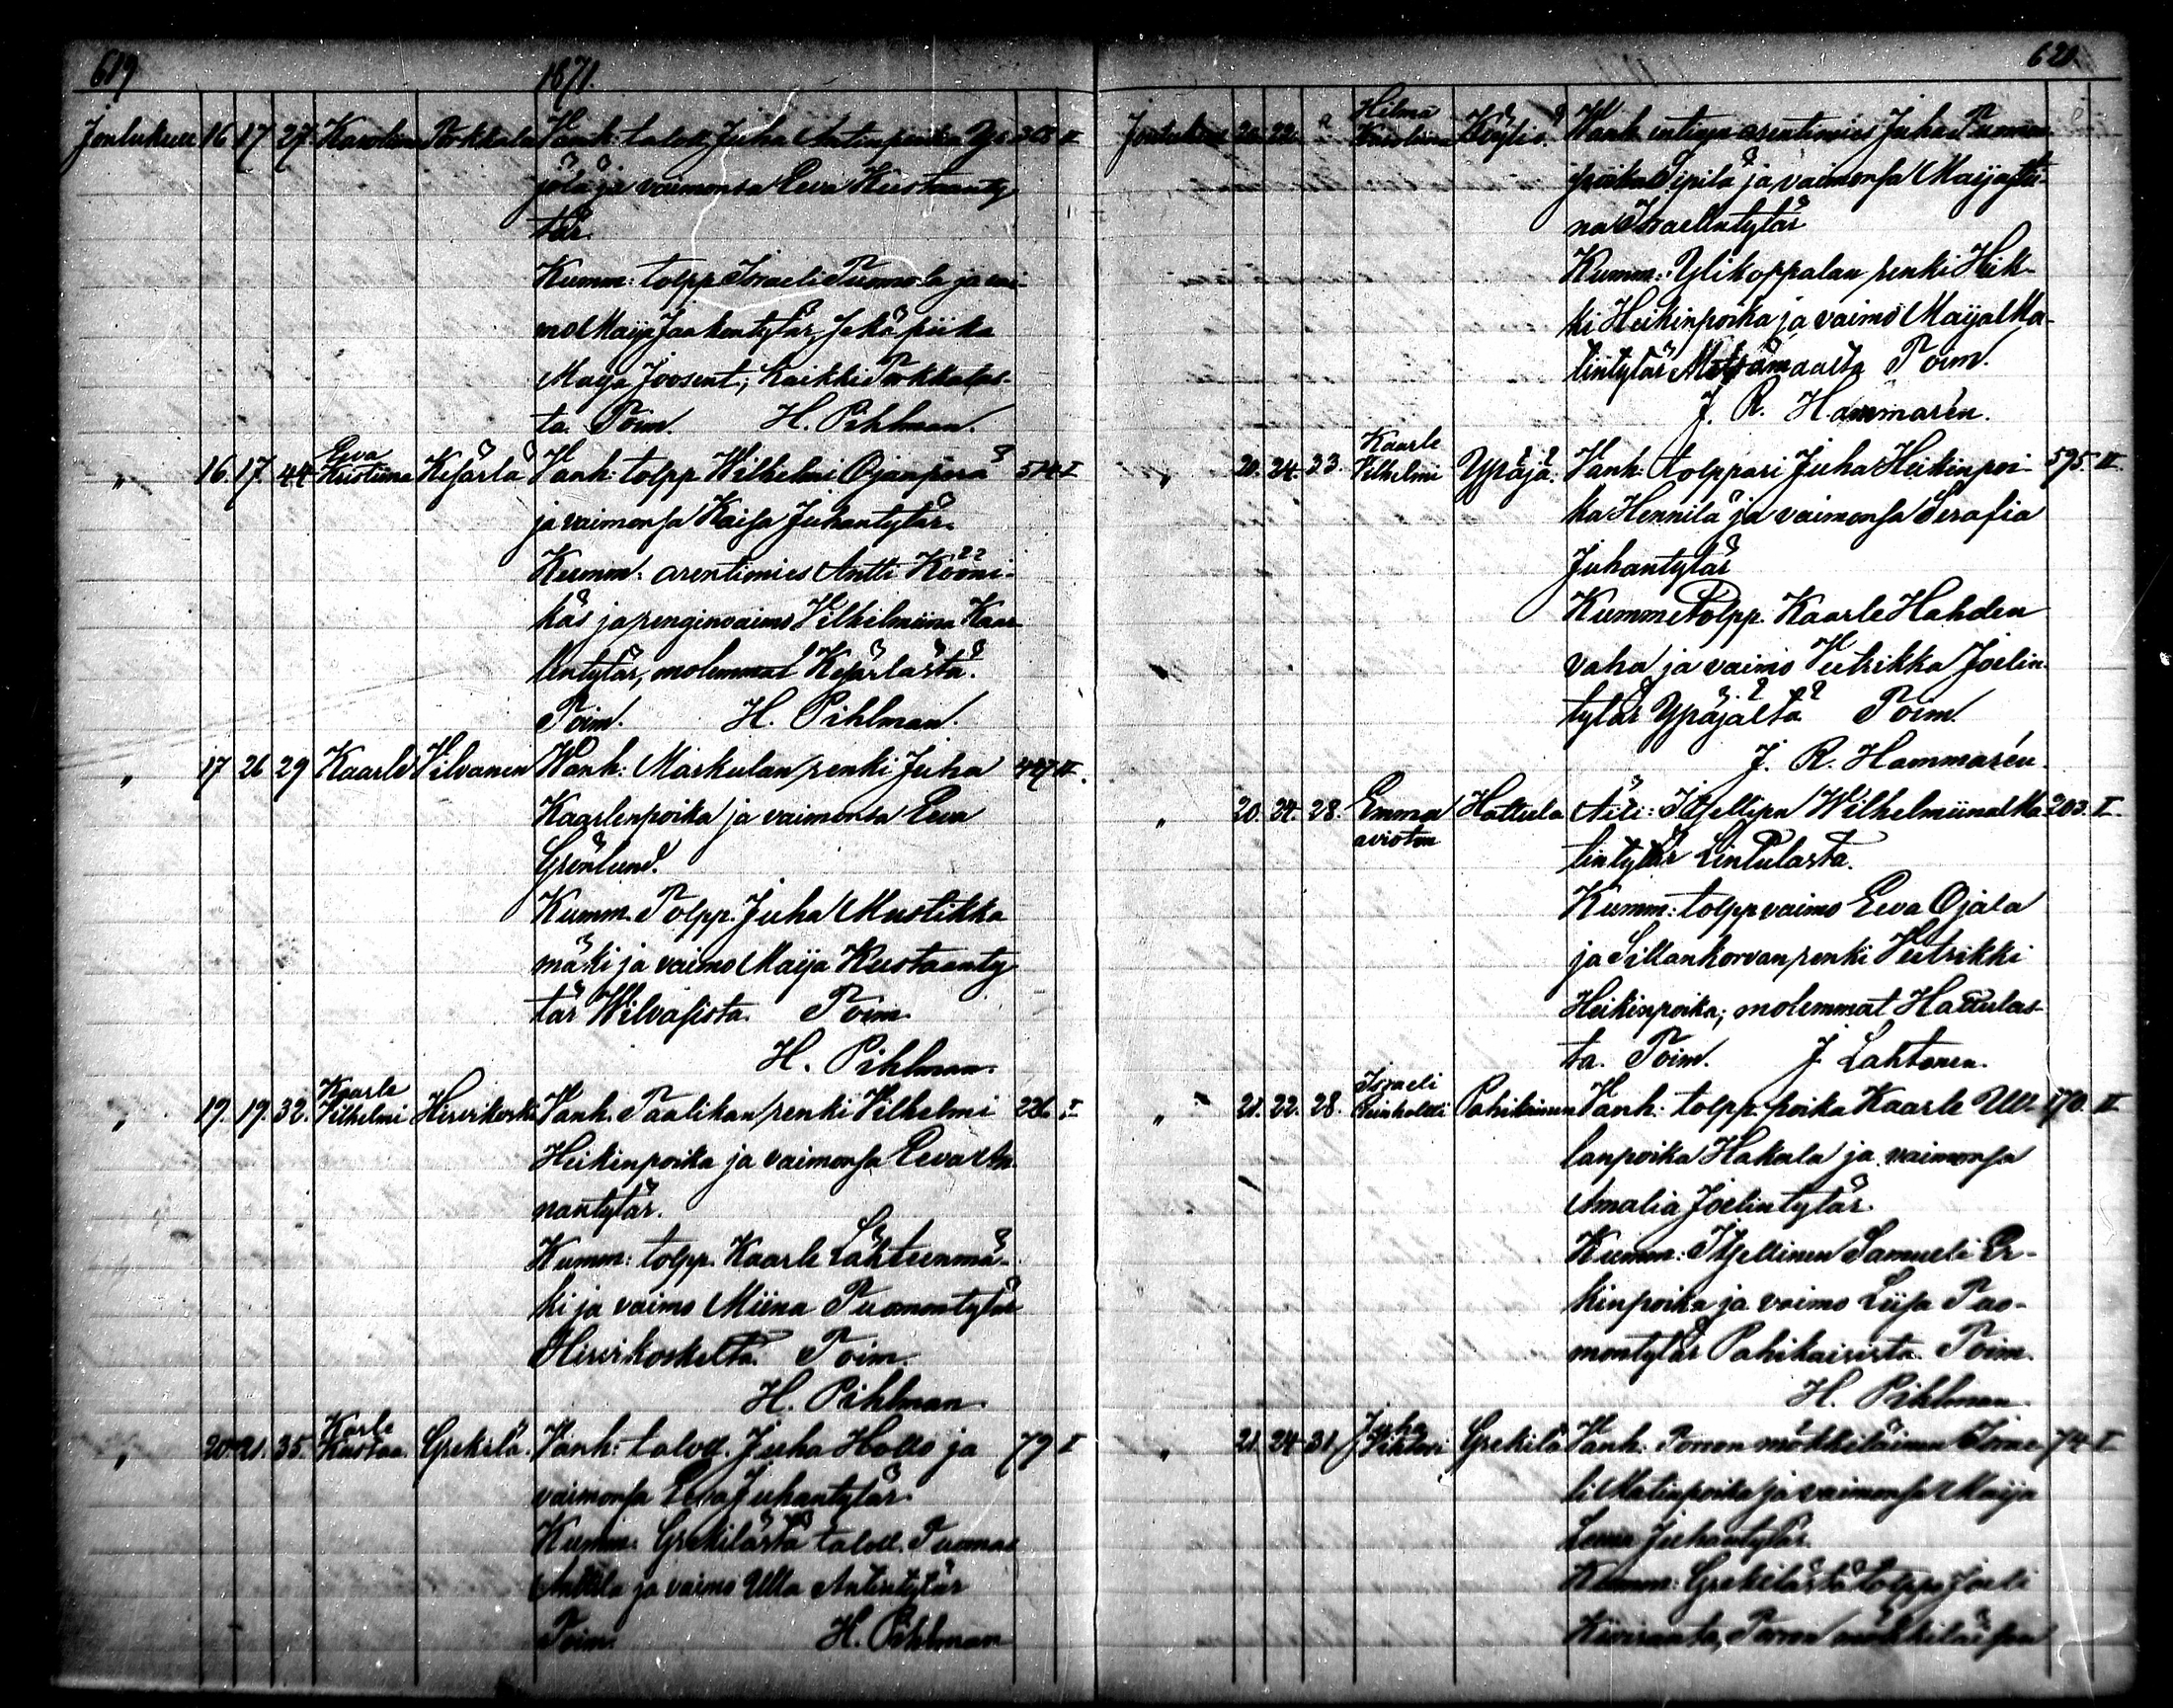 619
1871.
Joulukuu 16 17 27. Karoliina Pokkala Vanh. taloll. Juha Antinpoika Ypö- 368 II
jölä ja vaimonsa Eeva Kustaanty
tär.
Kumm: tolpp Israeli Tuomola ja vai-
mo Maija Jaakontytär, Sekä piika
Maija Joosent.; kaikki Pokkalas-
ta. Toim. H. Pihlman.
Eeva
" 16. 17. 44 Kristiina Kojärlä Vanh: tolpp Wilhelmi Ojanperä 514 I
ja vaimonsa Kaisa Juhantytär.
Kumm: arentimies Antti Kööni-
käs ja renginvaimo Vilhelmiina Kaar
lentytär, molemmat
Toim. H. Pihlman.
" 17 26 29 Kaarle Vilvanen Wanh: Markulan renki Juha 447 II.
Kaarlenpoika ja vaimonsa Eeva
Grönlund.
Kumm. Tolpp. Juha Mustikka
mäki ja vaimo Maija Kustaanty
tär Wilvasista. Toim.
H. Pihlman.
Kaarle
" 19. 19. 32. Vilhelmi Hirvikoski Vanh. Paalikan renki Vilhelmi 226. I
Heikinpoika ja vaimonsa Eeva An
nantytär.
Kumm: tolpp. Kaarle Lähteenmä-
ki ja vaimo Miina Tuomontytär
Hirvikoskelta. Toim.
H. Pihlman.
Karle
" 20. 21. 35. Kustaa. Grekilä. Vanh: taloll. Juha Hollo ja 79 I
vaimonsa Eeva Juhantytär.
Kumm: Grekilästä taloll. Tuomas
Anttila ja vaimo Ulla Antintytär
Toim. H. Pihlman
620.
Hilma
Joulukuu 20. 22. Karoliina Köyliö. Wanh. entinen arentimies Juha Tuoman
poika Sipilä ja vaimonsa Maija Sti-
na Israelintytär
Kumm: Ylikoppalan renki Heik-
ki Heikinpoika ja vaimo Maija Ma-
tintytär Metsämaalta Toim.
J. R. Hammarén.
Kaarle
" 20. 24. 33. Vilhelmi Ypäjä. Vanh: tolppari Juha Heikinpoi- 595. II.
ka Hennilä ja vaimonsa Serafia
Juhantytär
Kumm: Tolpp. Kaarle Hahden
vaha ja vaimo Vetrikka Joelin
tytär Ypäjältä Toim.
J. R. Hammarén.
" 20. 24. 28. Emma Hattula Äiti: Itsellinen Wilhelmiina Ma- 203. I.
avioton
tintytär Lintulasta.
Kumm: tolpp vaimo Eeva Ojala
ja Sillankorvan renki Vetrikki
Heikinpoika; molemmat Hattulas-
ta. Toim. J. Lahtonen.
Israeli
" 21. 22. 28. Reinholdi Pahikainen Vanh: tolpp. poika Kaarle Ul- 170. II
lanpoika Hakala ja vaimonsa
Amalia Joelintytär.
Kumm: Itsellinen Samueli Er-
kinpoika ja vaimo Liisa Tuo-
montytär Pahikaisista. Toim.
H. Pihlman
Juha
" 21. 24. 31. Vihtori Grekilä Vanh: Porron mökkiläinen Israe- 74. I
li Matinpoika ja vaimonsa Maija
Leena Juhantytär.
Kumm: Grekilästä tolppo Joeli
Kiviranta, Porron mökkiläisen